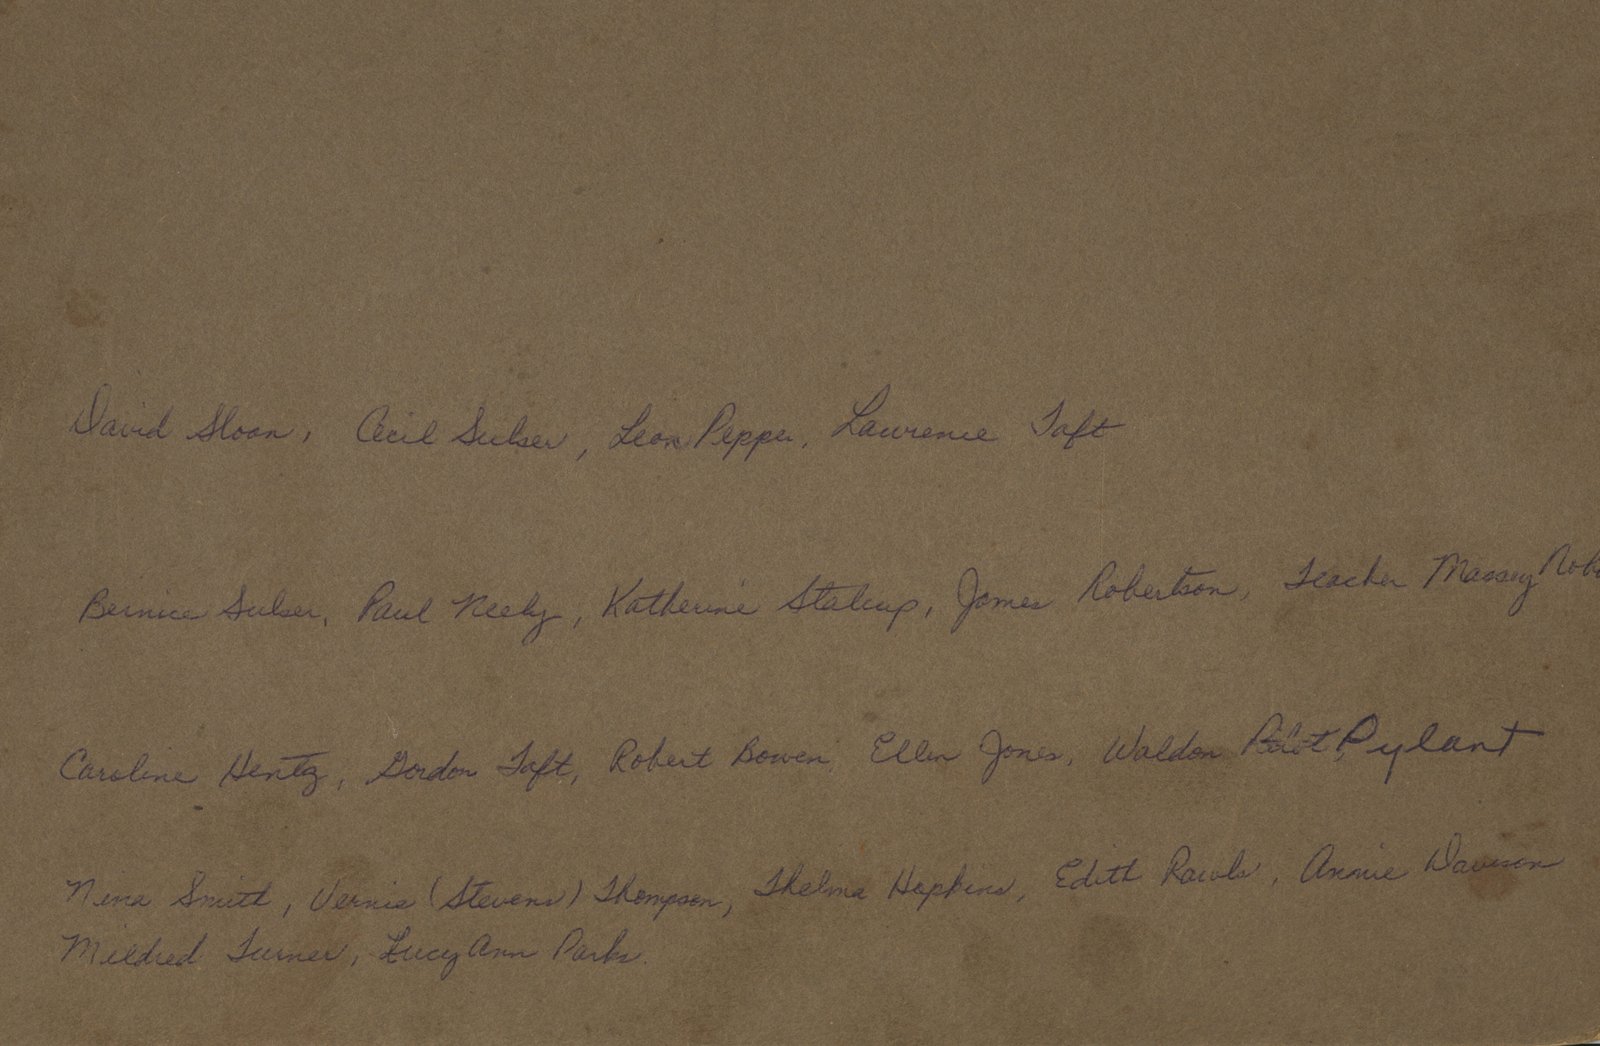 David Sloan, Cecil Sulser, Leon Pepper, Lawrence Taft
Bernice Sulser, Paul Neely, Katherine Stalcup, James Robertson, Teacher Massey Rob
Caroline Hentz, Gordon Taft, Robert Bowen, Ellen Jones, Waldon Pylant
Nina Smith, Vernie (Stevens) Thompson, Thelma Hopkins, Edith Rawls, Annie Davison
Mildred Turner, Lucy Ann Parks.